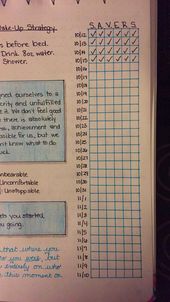 Wake-Up Strategy
s before bed.
Drink 8oz water.
Shower.
gned ourselves to a
crity and unfulfilled
We don't feel good
there is absolutely
achievement and
possible for us, but we
n't know what to do
uck.
nbearable
Uncomfortable
Unstoppable
ets you started,
you going.
that where you
who you were, but
entirely on who
this moment on
S.A.V.E.R.S.
10/12
10/13
10/14
10/15
10/16
10/17
10/18
10/19
10/20
10/21
10/22
10/23
10/24
10/25
10/26
10/27
10/28
10/29
10/30
10/31
11/1
11/2
11/3
11/4
11/5
11/6
11/7
11/8
11/9
11/10